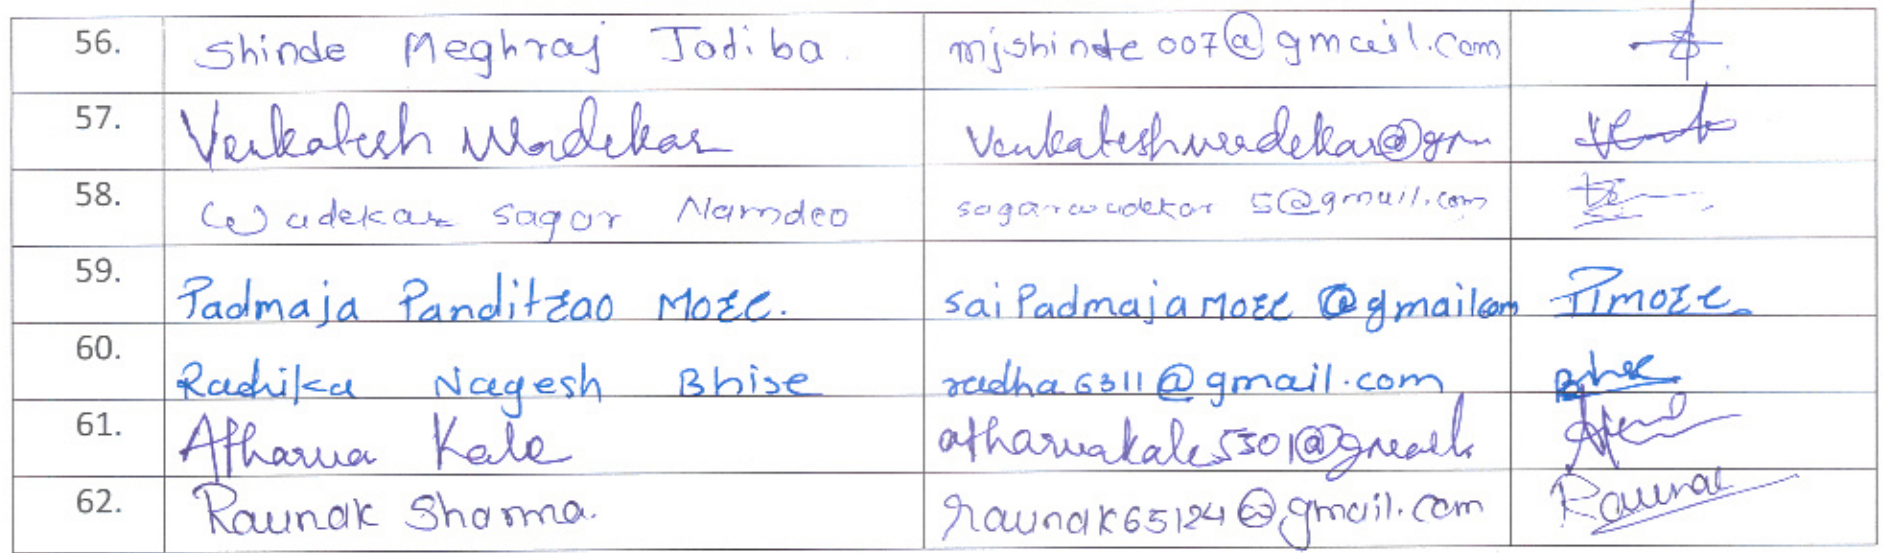 56. Shinde Meghraj Jotiba. mjshinde007@gmail.com
57. Venkatesh Wadekar
58. Wadekar sagar Namdeo sagarwadekar5@gmail.com
59. Padmaja Panditrao More. saiPadmajaMore@gmailcom PPmore
60. Radhika Nagesh Bhise radha6311@gmail.com Bhise
61. Atharva Kale
62. Raunak Sharma. raunak65124@gmail.com Raunak